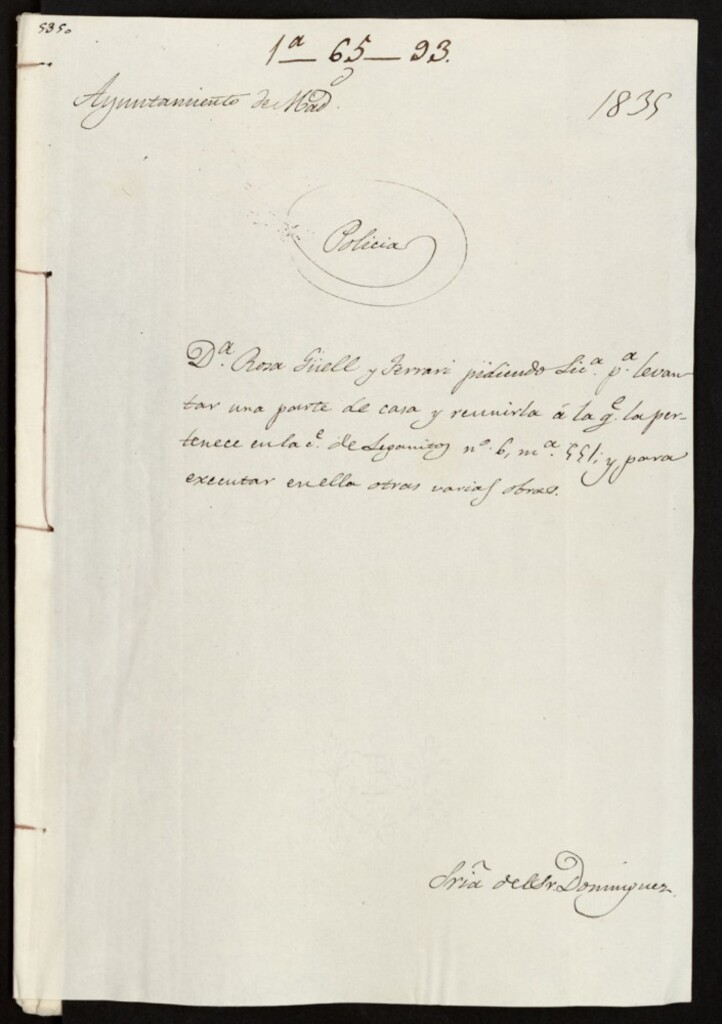 5350
1ª — 65 — 93.
Ayuntamiento de Madd.
1835
Policia
Dª. Rosa Güell y Ferrari pidiendo Licª. pª. levan-
tar una parte de casa y reunirla á la qᵉ. la per-
tenece en la cᵉ. de Leganitos nº. 6, mª. 551; y para
executar en ella otras varias obras.
Sriã del Sr. Dominguez